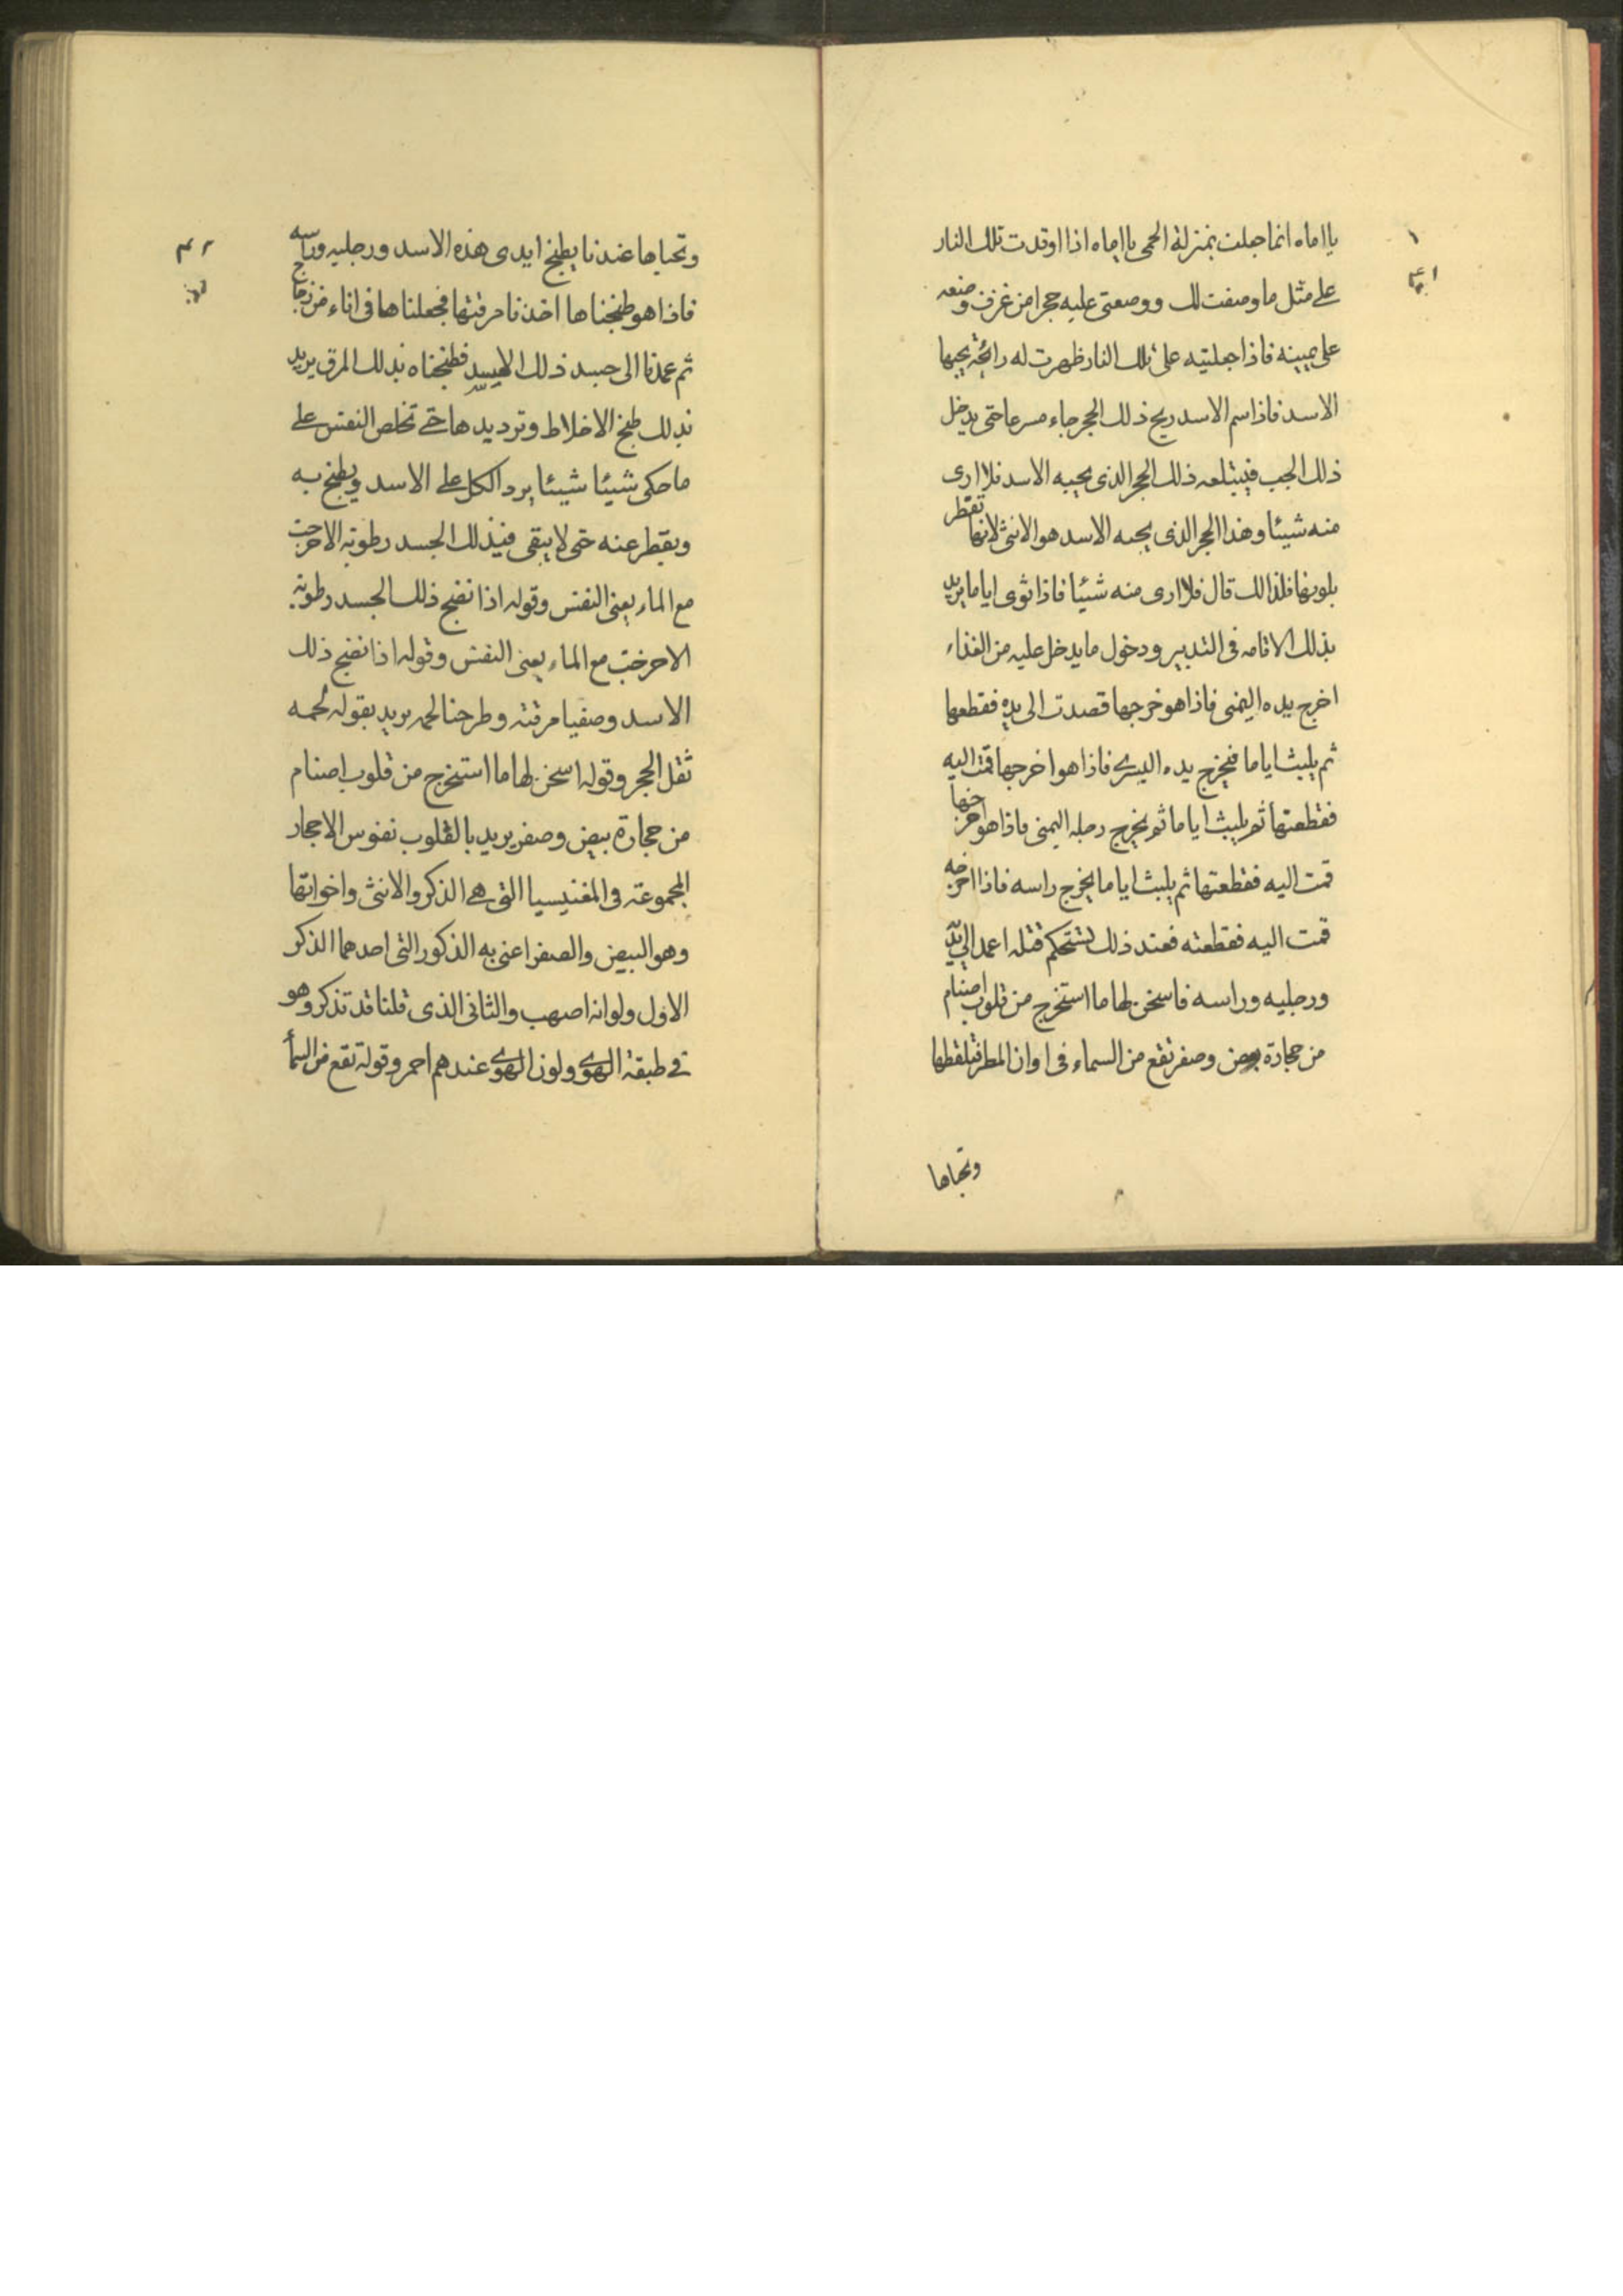 يا اماه انما جعلت بمنزلة الحمى يا اماه اذا اوقدت تلك النار
على مثل ما وصفت لك ووصعتى عليه حجرا من غرف وصنعه
على يمينه فاذا جعلتيه على تلك النار ظهرت له رائحة يحبها
الاسد فاذا سم الاسد ريح ذلك الحجر جاء مسرعا حتى يدخل
ذلك الجب فيبتلعه ذلك الحجر الذى يحبه الاسد فلا ارى
منه شيئا وهذا الحجر الذى يحبه الاسد هو الانثى لانها تقطر
بلونها فلذالك قال فلا ارى منه شئيا فاذا ثوى اياما يريد
بذلك الاقامه فى التدبير ودخول ما يدخل عليه من الغذاء
اخرج يده اليمنى فاذا هو خرجها قصدت الى يده فقطعها
ثم يلبث اياما فيخرج يده اليسرى فاذا هو اخرجها قمت اليه
فقطعتها ثم يلبث اياما ثم يخرج رجله اليمنى فاذا هو اخرجها
قمت اليه فقطعتها ثم يلبث اياما يخرج راسه فاذا اخرجه
قمت اليه فقطعته فعند ذلك تستحكم قتله اعمد الى يديه
ورجليه وراسه فاسخن لها ما استخرج من قلوب اصنام
من حجارة بيض وصفر تقع من السماء فى اوان المطر فتلقطها
وتحباها
وتحباها عندنا يطبخ ايدى هذه الاسد ورجليه وراسه
فاذا هو طبخناها اخذنا مرقتها فجعلناها فى اناء من زجاج
ثم عمدنا الى جسد ذلك الاسد فطبخناه بذلك المرق يريد
بذلك طبخ الاخلاط وترديدها حتى تخلص النفس على
ما حكى شيئا شيئا يرد الكل على الاسد ويطبخ به
ويقطر عنه حتى لا يبقى فيذلك الجسد رطوبة الاخرجت
مع الماء يعنى النفس وقوله اذا نضج ذلك الجسد رطوبة
الاخرجت مع الماء يعنى النفس وقوله اذا نضج ذلك
الاسد وصفيا مرقته وطرحنا لحمه يريد بقوله لحمه
ثفل الحجر وقوله اسخن لها ما استخرج من قلوب اصنام
من حجارة بيض وصفر يريد بالقلوب نفوس الاحجار
المجموعة فى المغنيسيا التى هى الذكر والانثى واخواتها
وهو البيض والصفر اعنى به الذكور التى احدهما الذكر
الاول ولوانه اصهب والثانى الذى قلنا قد تذكر وهو
فى طبقة الهوى ولون الهوى عندهم احمر وقولة تقع من السمأ